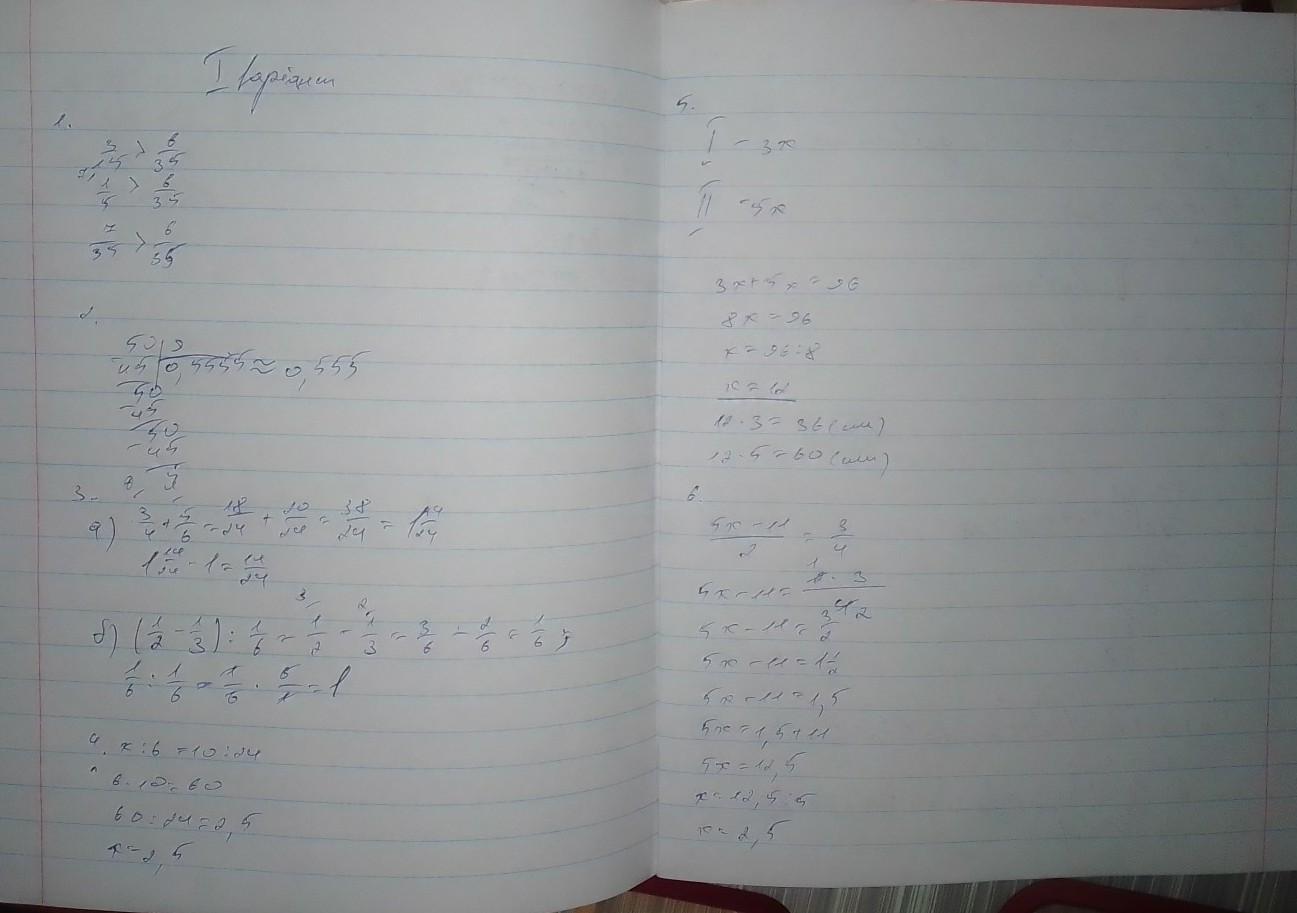 I варіант
1.
3/15 > 6/35
1/5 > 6/35
7/35 > 6/35
2.
50 | 9
-45 | 0,5555 ≈ 0,555
50
-45
50
-45
5
3.
а) 3/4 + 5/6 = 18/24 + 20/24 = 38/24 = 1 14/24
1 14/24 - 1 = 14/24
б) (1/2 - 1/3) : 1/6 = 1/2 - 1/3 = 3/6 - 2/6 = 1/6 ;
1/6 : 1/6 = 1/6 · 6/1 = 1
4. x : 6 = 10 : 24
6 · 10 = 60
60 : 24 = 2,5
x = 2,5
5.
I - 3x
II - 5x
3x + 5x = 96
8x = 96
x = 96 : 8
x = 12
12 · 3 = 36 (см)
12 · 5 = 60 (см)
6.
5x - 11 / 2 = 3/4
5x - 11 =
5x - 11 = 3/2
5x - 11 = 1 1/2
5x - 11 = 1,5
5x = 1,5 + 11
5x = 12,5
x = 12,5 : 5
x = 2,5